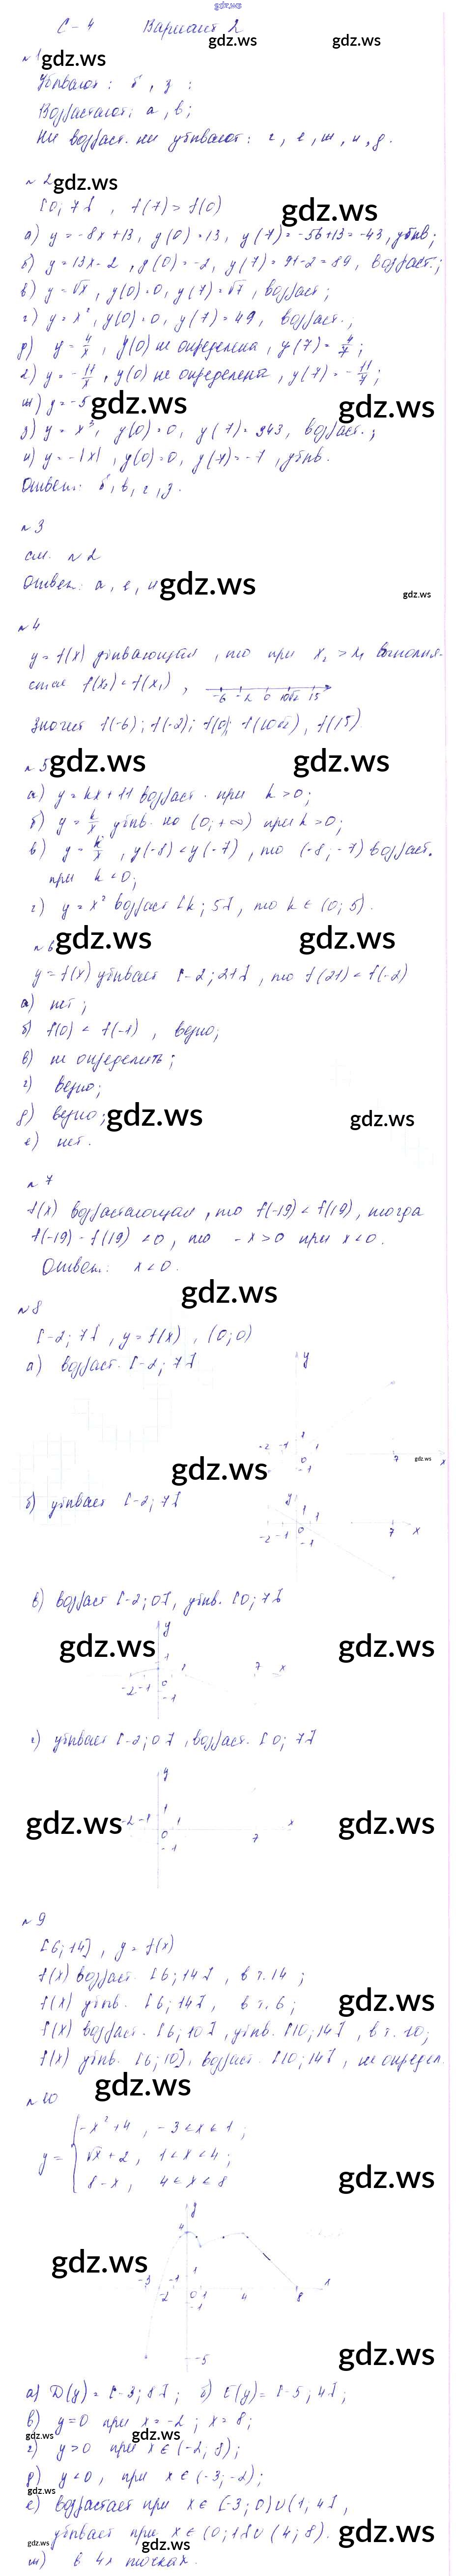 gdz.ws
С - 4 Вариант 2
gdz.ws gdz.ws
№ 1 gdz.ws
Убывают: б, з;
Возрастают: а, в;
Ни возраст. ни убывают: г, е, ж, и, д.
№ 2 gdz.ws
[0; 7], f(7) > f(0) gdz.ws
а) y = -8x + 13, y(0) = 13, y(7) = -56 + 13 = -43, убыв;
б) y = 13x - 2, y(0) = -2, y(7) = 91 - 2 = 89, возраст.;
в) y = √x, y(0) = 0, y(7) = √7, возраст;
г) y = x², y(0) = 0, y(7) = 49, возраст.;
д) y = 4/x, y(0) не определена, y(7) = 4/7;
е) y = -11/x, y(0) не определена, y(7) = -11/7;
ж) y = -5 gdz.ws gdz.ws
з) y = x³, y(0) = 0, y(7) = 343, возраст.;
и) y = -|x|, y(0) = 0, y(7) = -7, убыв.
Ответ: б, в, г, з.
№ 3
см. № 2
Ответ: а, е, и gdz.ws gdz.ws
№ 4
y = f(x) убывающая, то при x₂ > x₁ выполня-
ется f(x₂) < f(x₁), -6 -2 0 10√2 15
Значит f(-6); f(-2); f(0); f(10√2), f(15)
№ 5 gdz.ws gdz.ws
а) y = kx + 11 возраст. при k > 0;
б) y = k/x убыв. на (0; +∞) при k > 0;
в) y = k/x, y(-8) < y(-7), то (-8; -7) возраст.
при k < 0;
г) y = x² возраст [k; 5], то k ∈ (0; 5).
№ 6 gdz.ws gdz.ws
y = f(x) убывает [-2; 21], то f(21) < f(-2)
а) нет;
б) f(0) < f(-1), верно;
в) не определить;
г) верно;
д) верно; gdz.ws gdz.ws
е) нет.
№ 7
f(x) возрастающая, то f(-19) < f(19), тогда
f(-19) - f(19) < 0, то -x > 0 при x < 0.
Ответ: x < 0.
gdz.ws
№ 8
[-2; 7], y = f(x), (0; 0)
а) возраст. [-2; 7] y
-2 -1 0 1 -1 7 x
gdz.ws gdz.ws
б) убывает [-2; 7] y
1
-2 -1 0 1 -1 7 x
в) возраст [-2; 0], убыв. [0; 7]
gdz.ws y gdz.ws
1
-2 -1 0 1 -1 7 x
г) убывает [-2; 0], возраст. [0; 7]
y
gdz.ws -2 -1 1 0 1 -1 7 x gdz.ws
№ 9
[6; 14], y = f(x)
f(x) возраст. [6; 14], в т. 14;
f(x) убыв. [6; 14], в т. 6; gdz.ws
f(x) возраст. [6; 10], убыв. [10; 14], в т. 10;
f(x) убыв. [6; 10], возраст. [10; 14], не определ.
№ 10 gdz.ws
-x² + 4, -3 < x < 1;
y = { √x + 2, 1 < x < 4;
8 - x, 4 < x < 8
gdz.ws
y
4
gdz.ws
-3 -2 -1 0 1 1 -1 4 8 x
-5 gdz.ws
а) D(y) = [-3; 8]; б) E(y) = [-5; 4];
в) y = 0 при x = -2; x = 8;
gdz.ws gdz.ws
г) y > 0 при x ∈ (-2; 8);
д) y < 0, при x ∈ (-3; -2);
gdz.ws
е) возрастает при x ∈ [-3; 0) ∪ (1; 4],
убывает при x ∈ (0; 1] ∪ (4; 8). gdz.ws
gdz.ws gdz.ws
ж) в 4х точках.